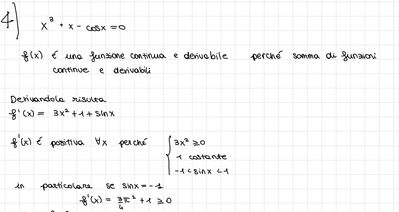 4) x³ + x - cosx = 0
f(x) é una funzione continua e derivabile perché somma di funzioni
continue e derivabili
Derivandola risulta
f'(x) = 3x² + 1 + sinx
f'(x) é positiva ∀x perché { 3x² ≥ 0
1 costante
-1 < sinx < 1
in particolare se sinx = -1
f'(x) = 3π²/4 + 1 ≥ 0